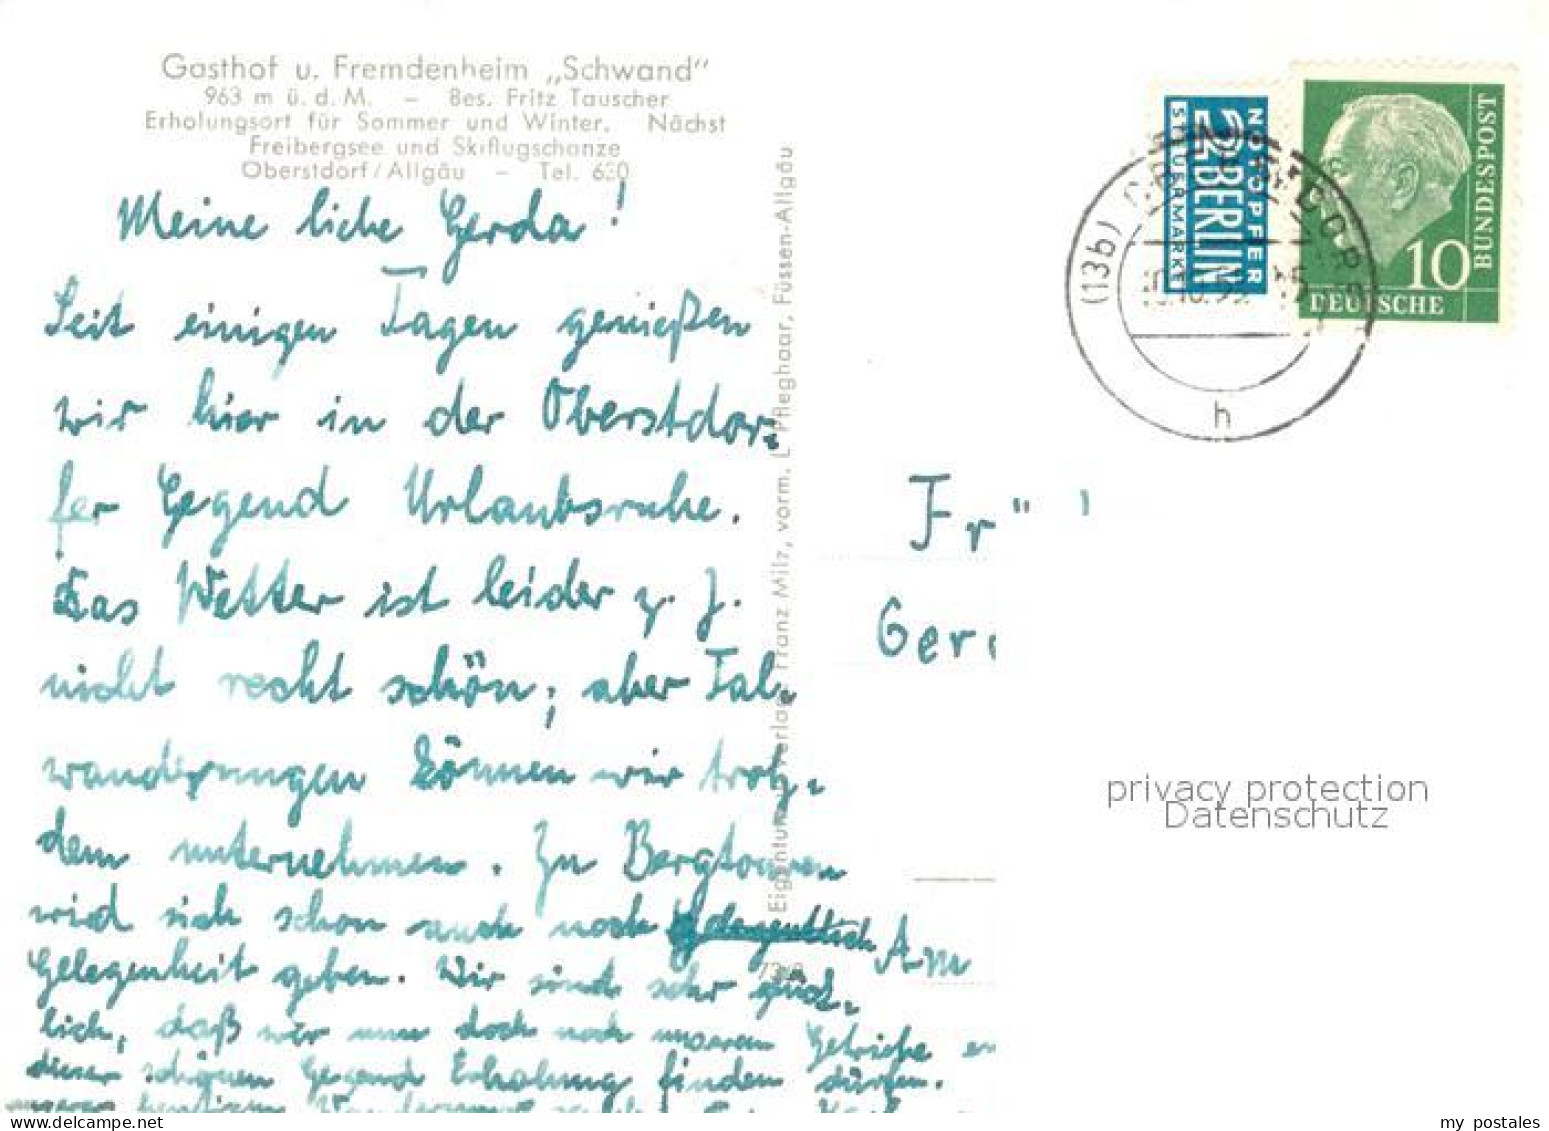 Gasthof u. Fremdenheim „Schwand"
963 m ü. d. M. – Bes. Fritz Tauscher
Erholungsort für Sommer und Winter. Nächst
Freibergsee und Skiflugschanze
Oberstdorf/Allgäu – Tel. 630
Meine liebe Gerda!
Seit einigen Tagen genießen
wir hier in der Oberstdor=
fer Gegend Urlaubsruhe.
Das Wetter ist leider z. Z.
nicht recht schön; aber Tal=
wanderungen können wir trotz=
dem unternehmen. Zu Bergtouren
wird sich schon auch noch
Gelegenheit geben. Wir sind sehr glück=
lich, daß wir nun doch noch unserem Getriebe
dieser schönen Gegend Erholung finden dürfen.
Eigentum u. Verlag Franz Milz, vorm. L. Pfleghaar, Füssen-Allgäu
NOTOPFER
2 BERLIN
STEUERMARKE
DEUTSCHE
BUNDESPOST
10
(13b) OBERSTDORF
h
Fr
Ger
Am
privacy protection
Datenschutz
my postales